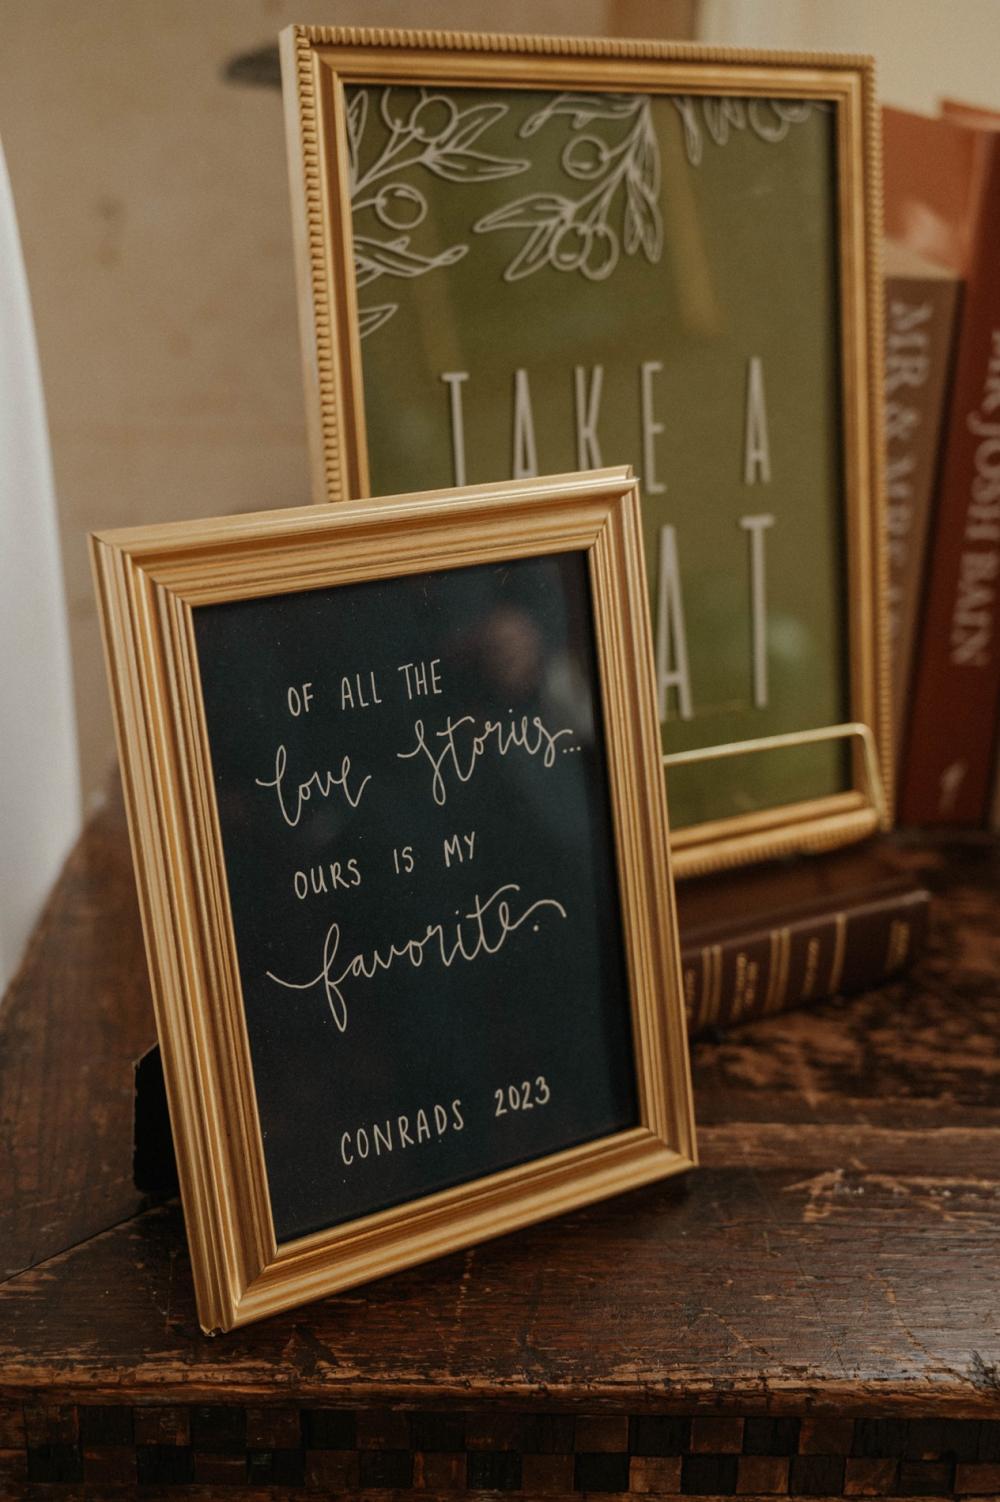 TAKE A
AT
OF ALL THE
love stories...
OURS IS MY
favorite.
CONRADS 2023
MR &
JOSH BAIN